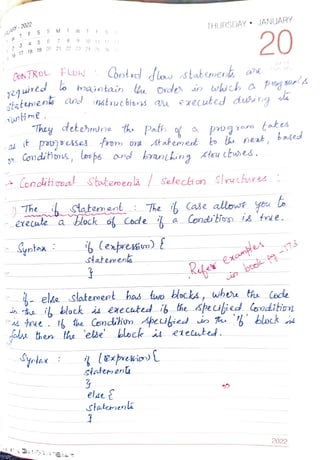 JANUARY - 2022
THURSDAY • JANUARY
20
CONTROL FLOW : Control flow statements are
required to maintain the order in which a program's
statements and instructions are executed during the
runtime.
They determine the path of a program takes
as it progresses from one statement to the next, based
on conditions, loops and branching structures.
→ Conditional Statements / Selection Structures :
1) The if Statement : The if case allows you to
execute a block of code if a condition is true.
Syntax : if (expression) {
statements
}
Refer Examples
in book pg - 173
if - else statement has two blocks, where the code
in the if block is executed if the specified condition
is true. If the condition specified in the 'if' block is
false then the 'else' block is executed.
Syntax : if (expression) {
statements
}
else {
statements
}
2022